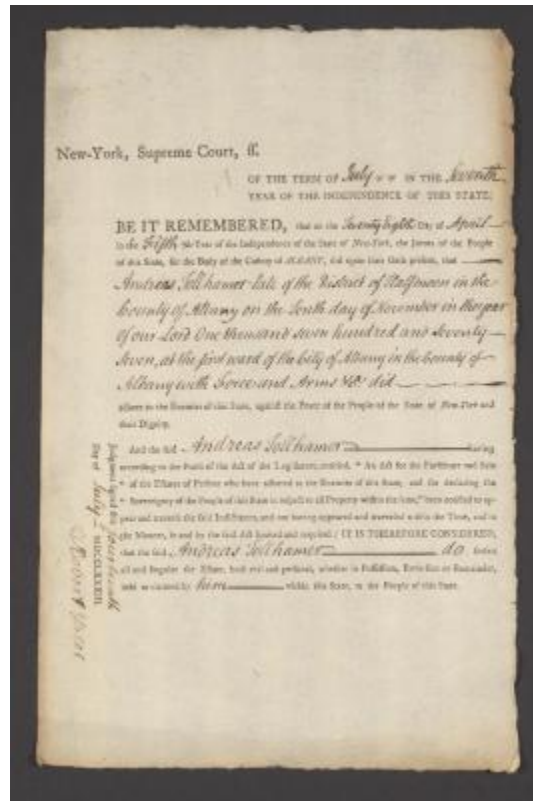 New-York, Supreme Court, ſſ.
OF THE TERM OF July IN THE Seventh
YEAR OF THE INDEPENDENCE OF THIS STATE;
BE IT REMEMBERED, that on the Twenty Eighth Day of April
in the Fifth Year of the Independence of the State of New-York, the Jurors of the People
of this State, for the Body of the County of ALBANY, did upon their Oath present, that
Andreas Tollhamer late of the District of in the
County of Albany on the Tenth day of November in the year
Of our Lord One thousand seven hundred and Seventy
Seven, at the first ward of the City of Albany in the County of
Albany with Force and Arms &c did
adhere to the Enemies of this State, against the Peace of the People of the State of New-York and
their Dignity.
And the said Andreas Tollhamer having
according to the Form of the Act of the Legislature, entitled, " An Act for the Forfeiture and Sale
" of the Estates of Persons who have adhered to the Enemies of this State, and for declaring the
" Sovereignty of the People of this State in respect to all Property within the same," been notified to ap-
pear and traverse the said Indictment, and not having appeared and traversed within the Time, and in
the Manner, in and by the said Act limited and required; IT IS THEREFORE CONSIDERED,
that the said Andreas Tollhamer do forfeit
all and singular the Estate, both real and personal, whether in Possession, Reversion or Remainder,
held or claimed by him within this State, to the People of this State.
Judgment signed this
Day of July MDCCLXXXIII